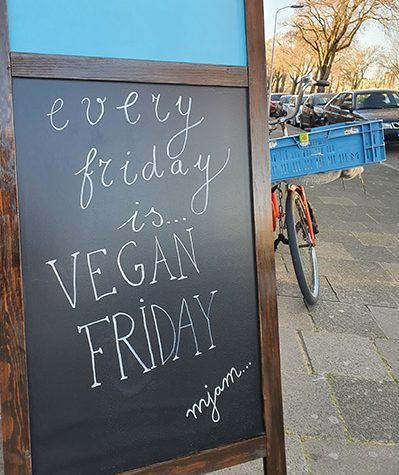 every
friday
is...
VEGAN
FRIDAY
mjam...